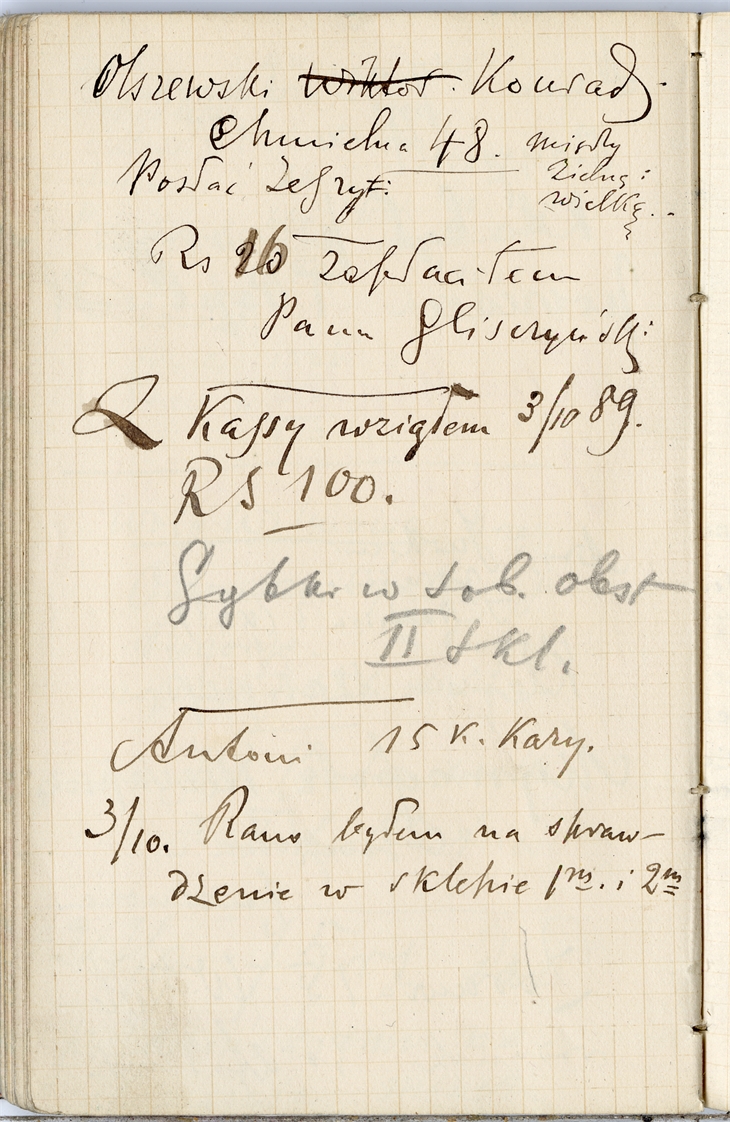 Olszewski Wiktor. Konrad
Chmielna 48. między
Zielną i
wielką.
Posłać
Rs 16 Zapłaciłem
Panu Gliszczyński
Z Kassy wziąłem 3/10 89.
RS 100.
w sob. obst
II skl.
Antoni 15 K. Kary.
3/10. Rano byłem na spraw-
dzenie w sklepie 1m. i 2m